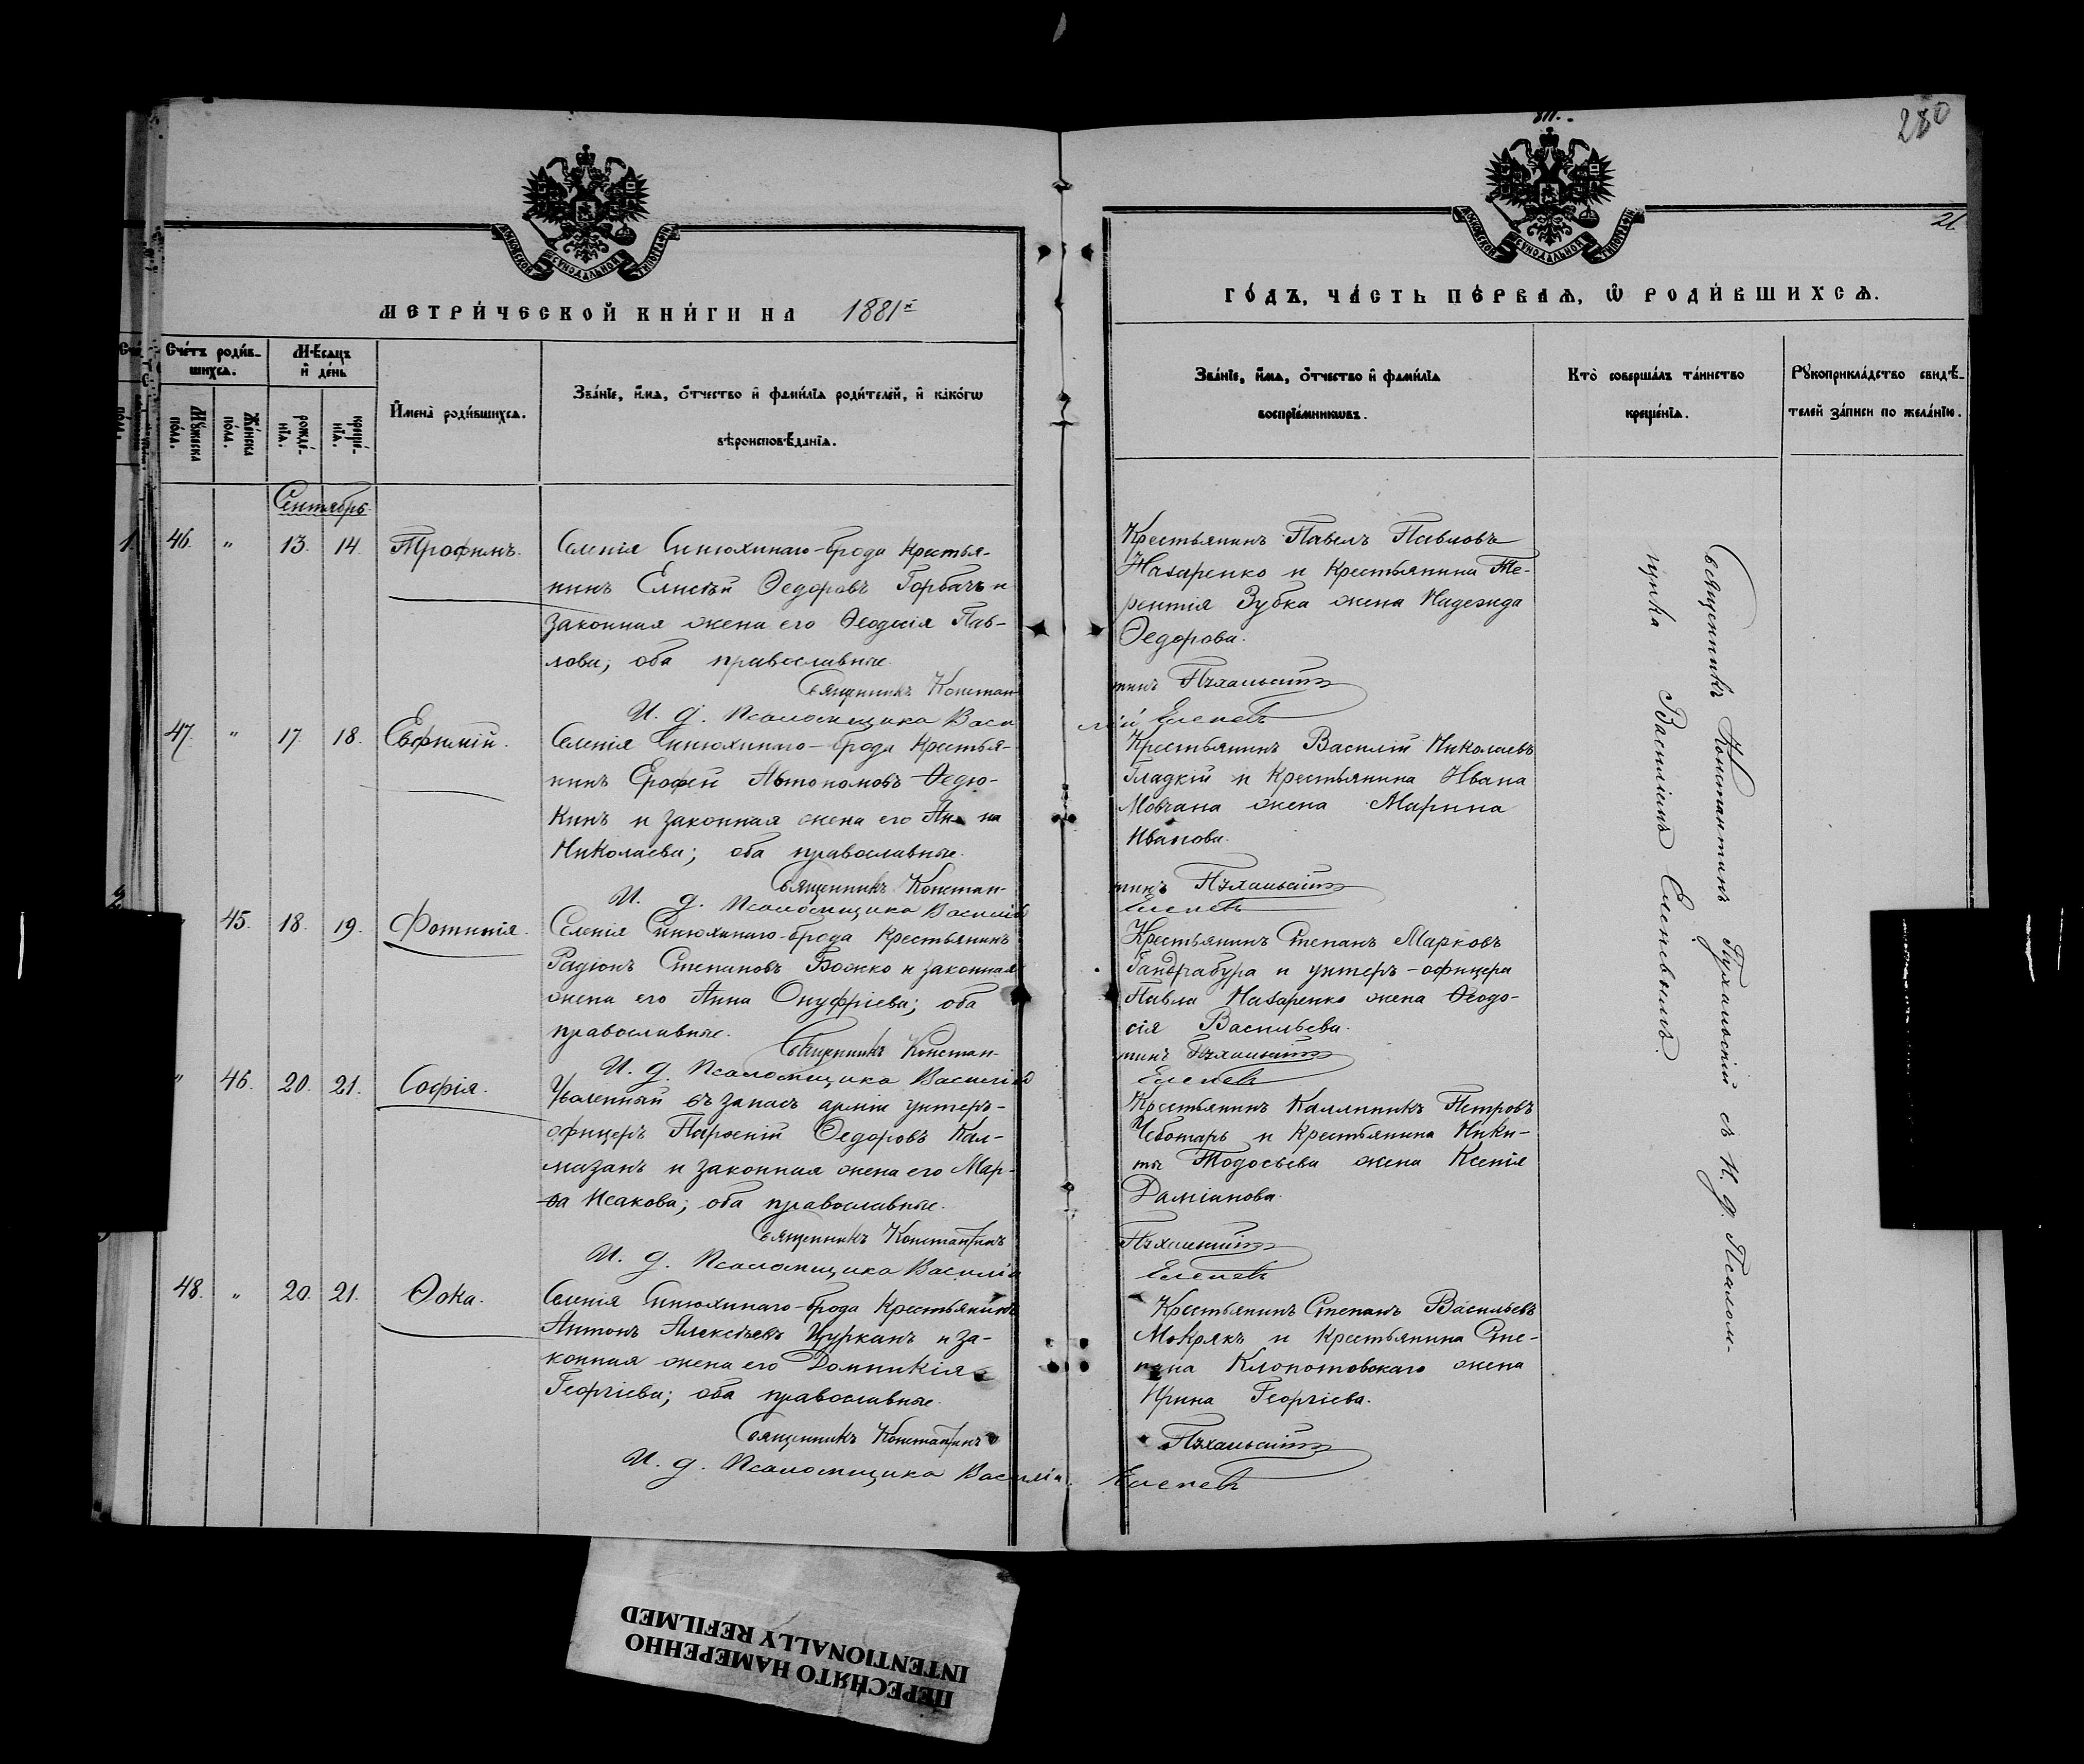 280
21.
МЕТРИ́ЧЕСКОЙ КНИ́ГИ НА 1881й
ГО́ДЪ, ЧА́СТЬ ПЕ́РВАѦ, Ѿ РОДИ́ВШИХСѦ.
Сче́тъ роди́в-
шихсѧ.
Мѣсѧцъ
и де́нь
Мꙋжеска
по́ла.
Же́нска
по́ла.
рожде́-
нїѧ.
креще́-
нїѧ.
Имена̀ роди́вшихсѧ.
Зва́нїе, и́мѧ, о́тчество и фами́лїѧ роди́телей, и како́гѡ
вѣроисповѣданїѧ.
Зва́нїе, и́мѧ, о́тчество и фами́лїѧ
воспрїе́мникѡвъ.
Кто̀ соверша́лъ та́инство
креще́нїѧ.
Рꙋкоприкла́дство свидѣ́-
телей за́писи по жела́нїю.
Сентябрь
46. " 13. 14. Трофимъ.
Селенія Синюхинаго-брода крестья-
нинъ Елисѣй Ѳедоровъ Горбачъ и
законная жена его Ѳеодосія Пав-
лова; оба православные.
Священникъ Констан-
И. д. Псаломщика Васи
Крестьянинъ Павелъ Павловъ
Назаренко и крестьянина Те-
рентія Зубка жена Надежда
Ѳедорова.
тинъ Пухальскій
лій Еленевъ
47. " 17. 18. Евфимій.
Селенія Синюхинаго-брода крестья-
нинъ Ерофей Автономовъ Ѳедю-
кинъ и законная жена его Ан на
Николаева; оба православные.
Священникъ Констан-
И. д. Псаломщика Василій
Крестьянинъ Василій Николаевъ
Гладкій и крестьянина Ивана
Мовчана жена Марина
Иванова.
тинъ Пухальскій
Еленевъ
45. 18. 19. Фотинія.
Селенія Синюхинаго-брода крестьянинъ
Радіонъ Степановъ Божко и законная
жена его Анна Онуфріева; оба
православные.
Священникъ Констан-
И. д. Псаломщика Василій
Крестьянинъ Степанъ Марковъ
Гандрабура и унтеръ-офицера
Павла Назаренко жена Ѳеодо-
сія Васильева.
тинъ Пухальскій
Еленевъ
" 46. 20. 21. Софія.
Уволенный въ запасъ арміи унтеръ-
офицеръ Парѳеній Ѳедоровъ Кал-
мазанъ и законная жена его Мар-
ѳа Исакова; оба православные.
Священникъ Константинъ
И. д. Псаломщика Василій
Крестьянинъ Каллиникъ Петровъ
Чеботарь и крестьянина Ники-
ты Тодосьева жена Ксенія
Даміанова.
Пухальскій
Еленевъ
48. " 20. 21. Ѳока.
Селенія Синюхинаго-брода крестьянинъ
Антонъ Алексѣевъ Цурканъ и за-
конная жена его Домникія
Георгіева; оба православные.
Священникъ Константинъ
И. д. Псаломщика Василій
Крестьянинъ Степанъ Васильевъ
Мокрякъ и крестьянина Сте-
пана Клопотовскаго жена
Ирина Георгіева.
Пухальскій
Еленевъ
Священникъ Константинъ Пухальскій съ И. д. Псалом-
щика Василіемъ Еленевымъ.
ПЕРЕСНЯТО НАМЕРЕННО
INTENTIONALLY REFILMED